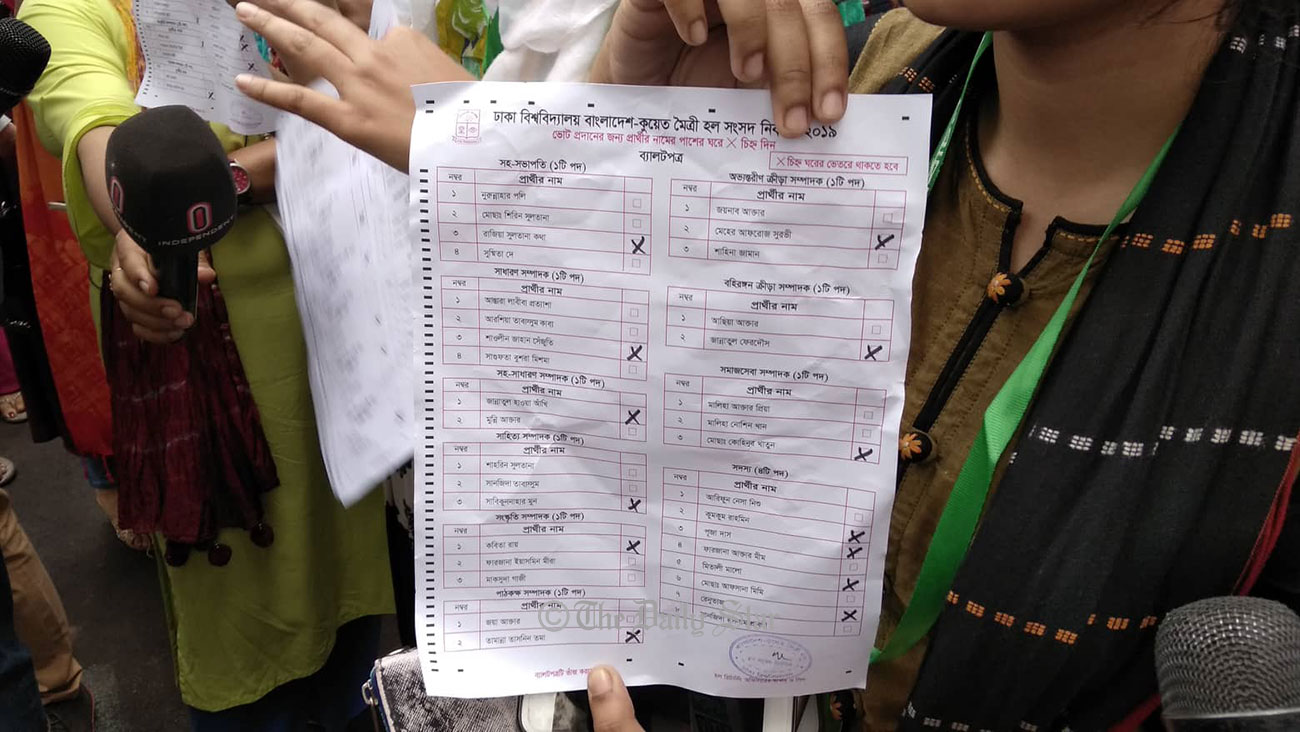 ঢাকা বিশ্ববিদ্যালয় বাংলাদেশ-কুয়েত মৈত্রী হল সংসদ ২০১৯
ভোট প্রদানের জন্য প্রার্থীর নামের পাশের ঘরে X চিহ্ন দিন
ব্যালটপত্র
X চিহ্ন ঘরের ভেতরে থাকতে হবে
সহ-সভাপতি (১টি পদ)
নম্বর প্রার্থীর নাম
১ নুরুন্নাহার পলি
২ মোছাঃ শিরিন সুলতানা
৩ রাজিয়া সুলতানা কথা
৪ সুস্মিতা দে
সাধারণ সম্পাদক (১টি পদ)
নম্বর প্রার্থীর নাম
১ লাবীবা প্রত্যাশা
২ আরশিয়া তাবাসসুম কাব্য
৩ শাওলীন জাহান সেঁজুতি
৪ সাগুফতা বুশরা মিশমা
সহ-সাধারণ সম্পাদক (১টি পদ)
নম্বর প্রার্থীর নাম
১ জান্নাতুল হাওয়া আঁখি
২ মুন্নি আক্তার
সাহিত্য সম্পাদক (১টি পদ)
নম্বর প্রার্থীর নাম
১ শাহরিন সুলতানা
২ সানজিদা তাবাসসুম
৩ সাবিকুননাহার মুন
সংস্কৃতি সম্পাদক (১টি পদ)
নম্বর প্রার্থীর নাম
১ কবিতা রায়
২ ফারজানা ইয়াসমিন মীরা
৩ মাকসুদা গাজী
পাঠকক্ষ সম্পাদক (১টি পদ)
নম্বর প্রার্থীর নাম
১ জয়া আক্তার
২ তামান্না তাসনিন তমা
ব্যালটপত্রটি ভাঁজ
অভ্যন্তরীণ ক্রীড়া সম্পাদক (১টি পদ)
নম্বর প্রার্থীর নাম
১ জয়নাব আক্তার
২ মেহের আফরোজ সুরভী
৩ শাহিনা জামান
বহিরঙ্গন ক্রীড়া সম্পাদক (১টি পদ)
নম্বর প্রার্থীর নাম
১ আছিয়া আক্তার
২ জান্নাতুল ফেরদৌস
সমাজসেবা সম্পাদক (১টি পদ)
নম্বর প্রার্থীর নাম
১ মালিহা আক্তার প্রিয়া
২ মালিহা নোশিন খান
৩ মোছাঃ কোহিনুর খাতুন
সদস্য (৪টি পদ)
নম্বর প্রার্থীর নাম
১ আবিফুন নেসা নিশু
২ কুমকুম রাহমিন
৩ পূজা দাস
৪ ফারজানা আক্তার মীম
৫ মিতালী মালো
৬ মোছাঃ আফসানা মিমি
৭
© The Daily Star
INDEPENDENT